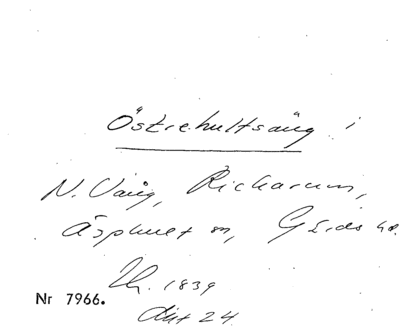 Östrehultsäng i
N. Vång, Rickarum,
Äsphult sn, Gärds hd.
Th. 1839
Akt 24
Nr 7966.